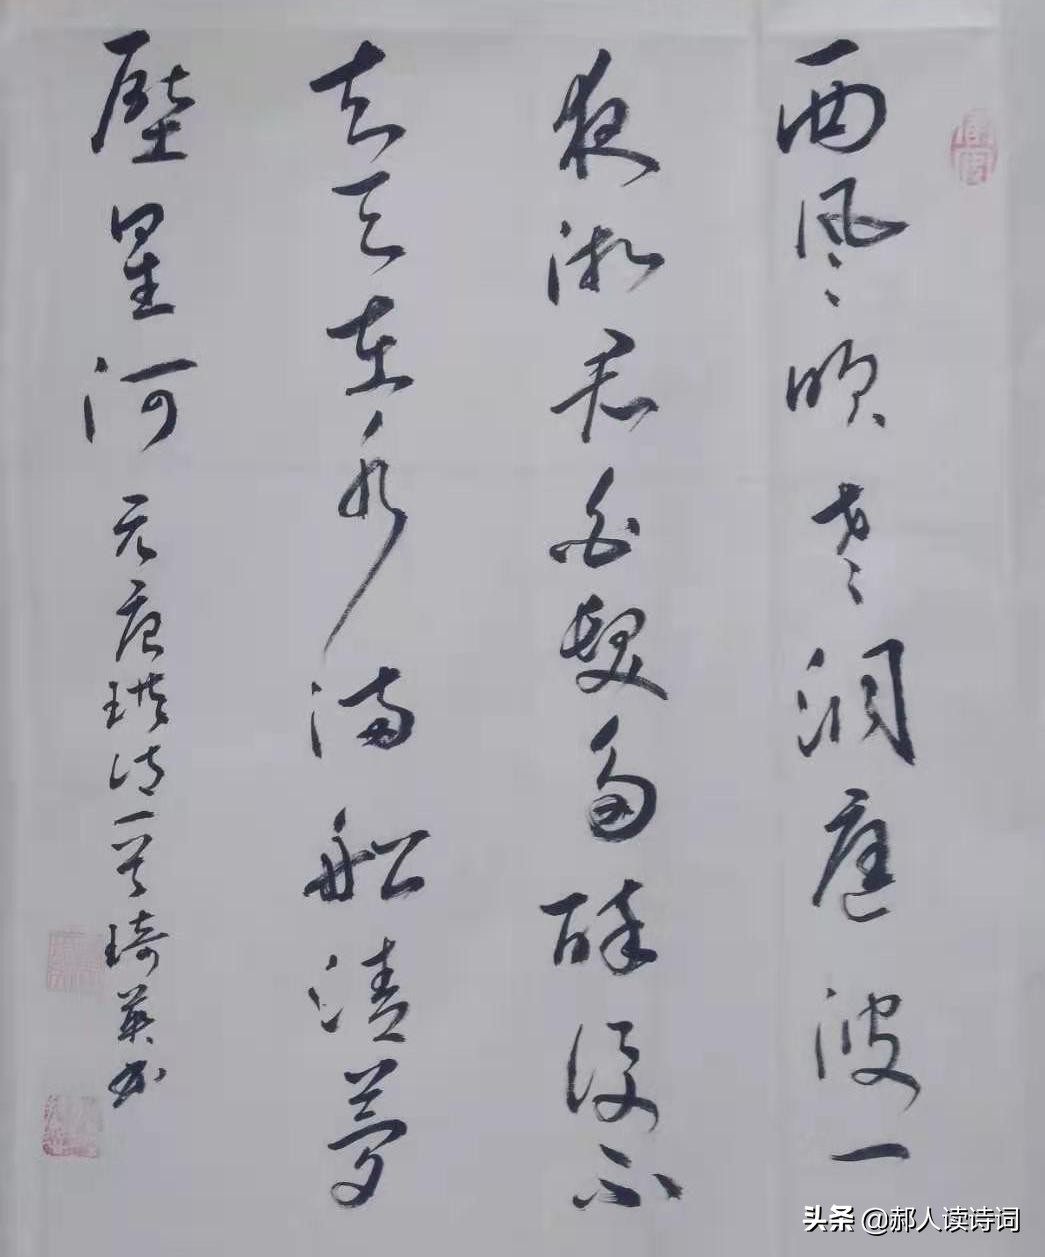 西風吹老洞庭波一
夜湘君白髮多醉後不
知天在水滿船清夢
壓星河 元唐珙詩一首琦英書
头条 @郝人读诗词